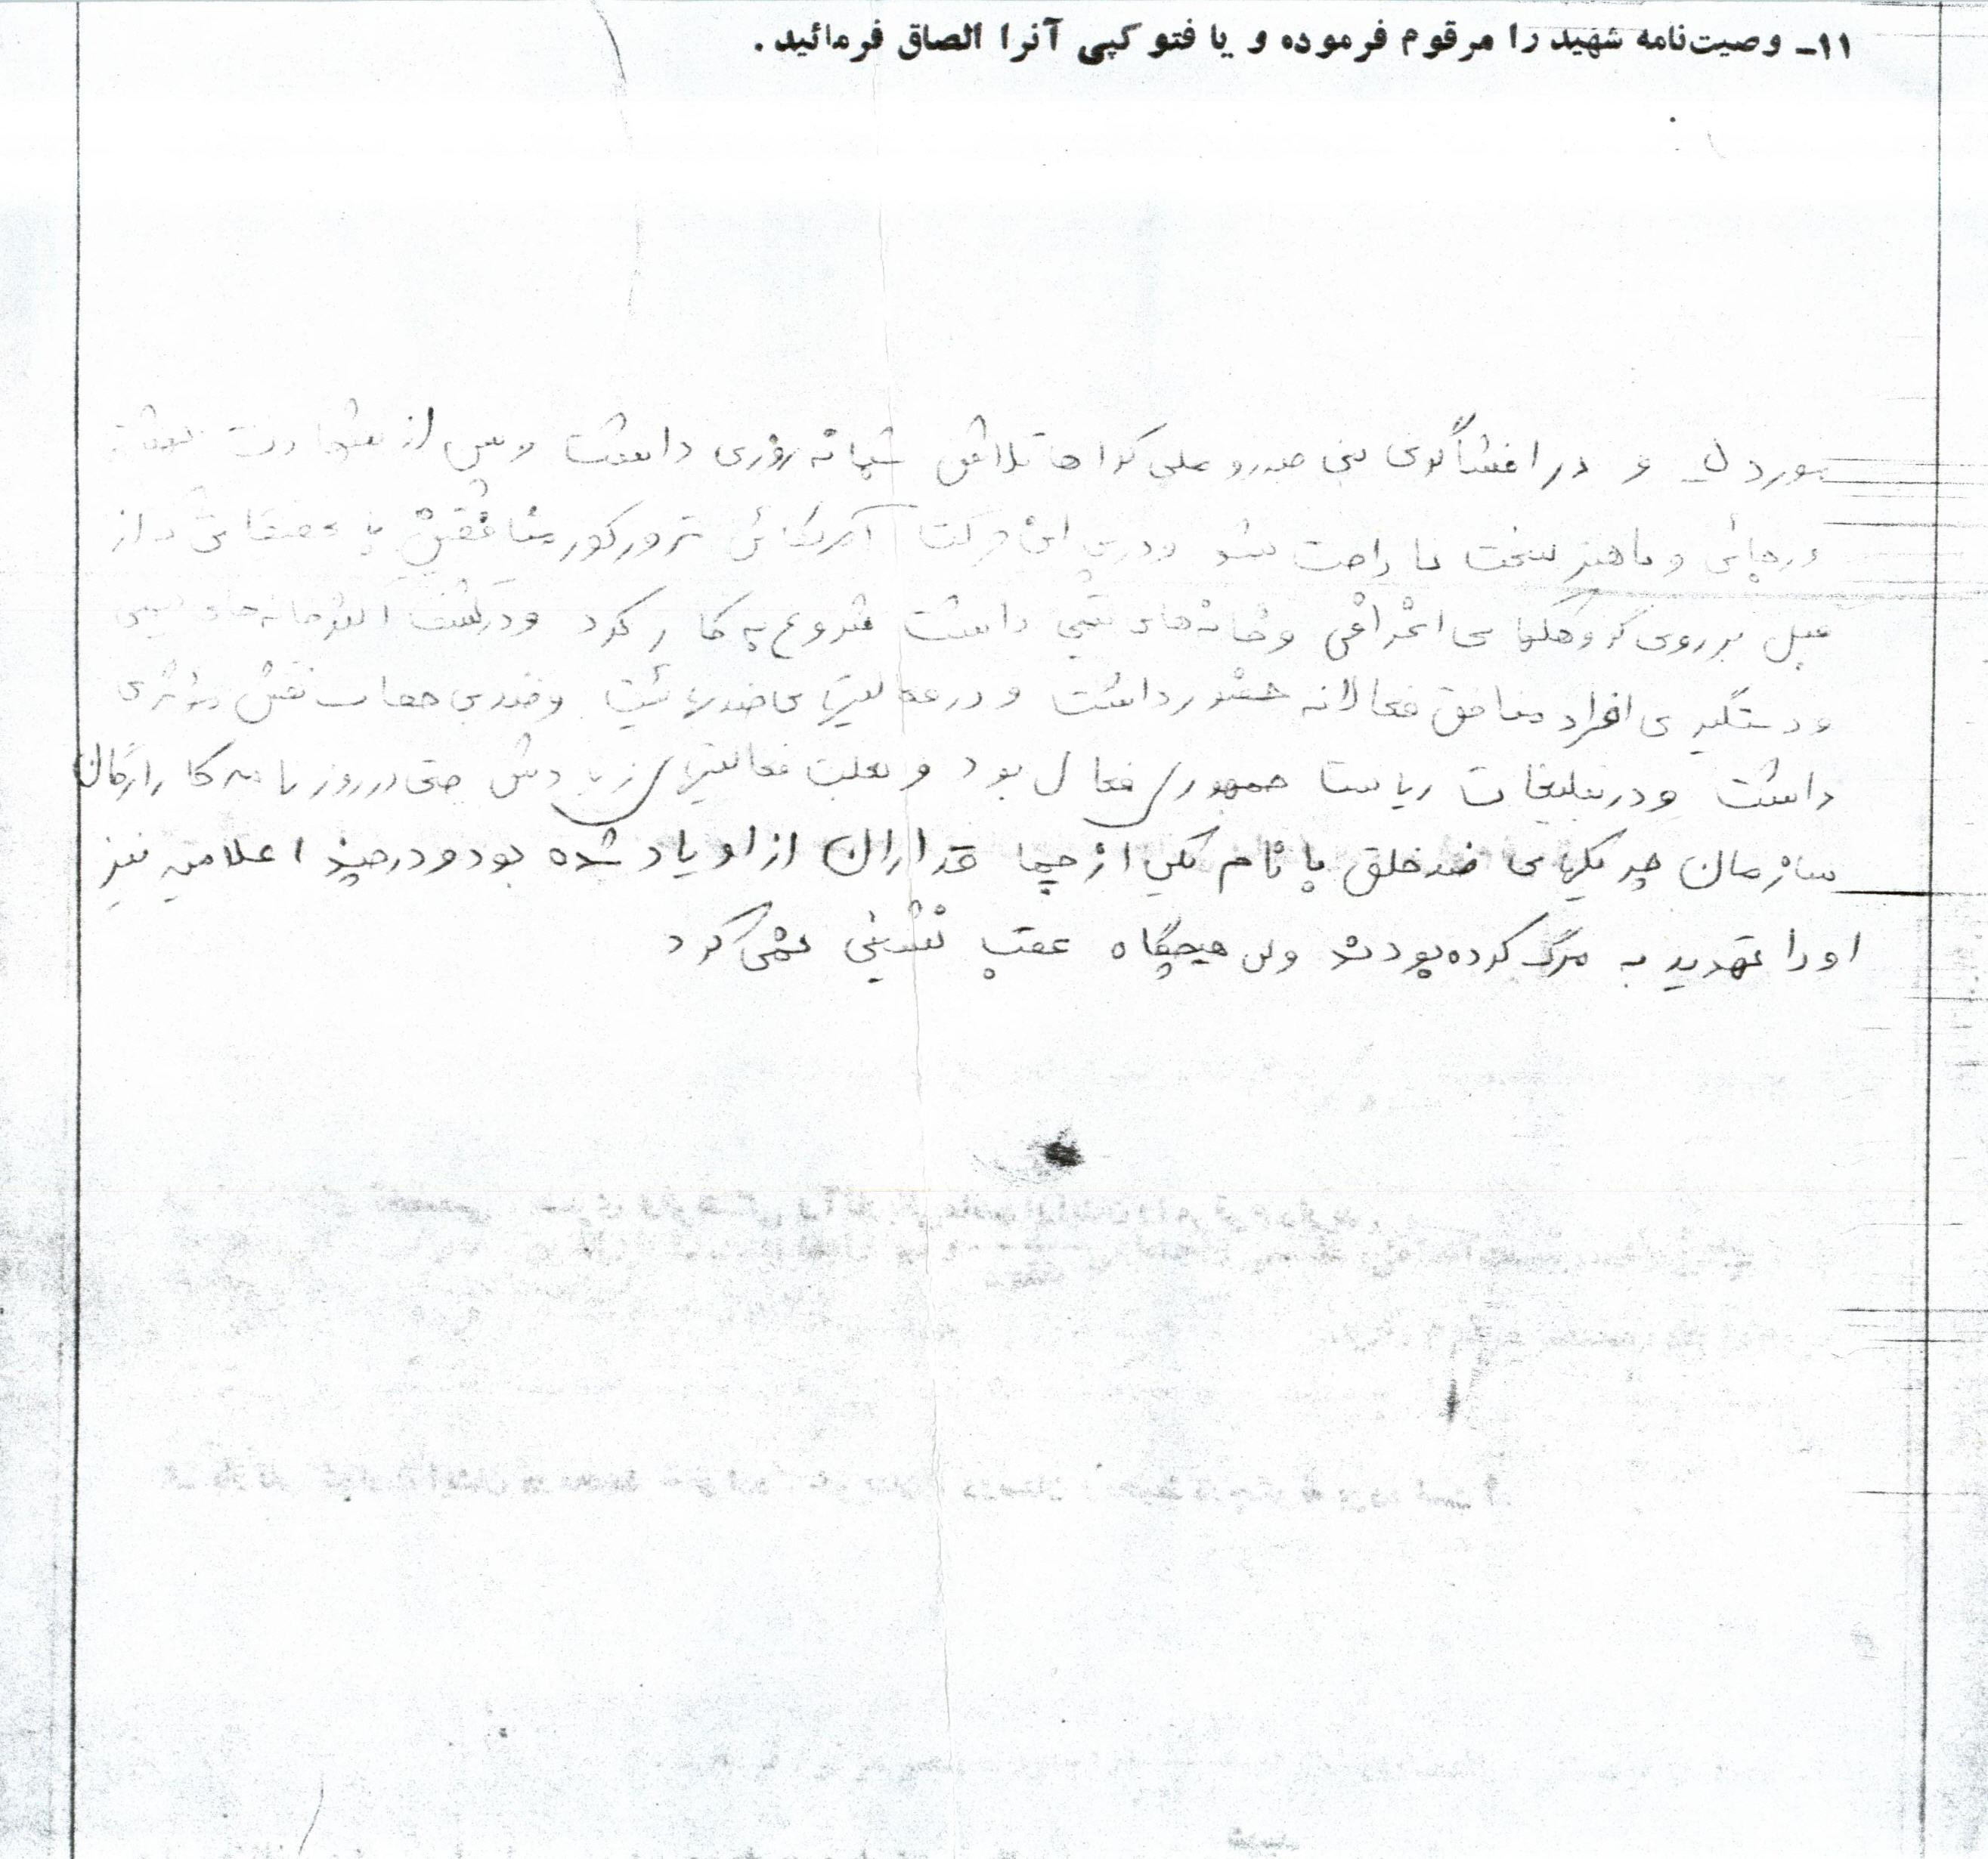 ۱۱ـ وصیت‌نامه شهید را مرقوم فرموده و یا فتو کپی آنرا الصاق فرمائید.
و در افشاگری بنی صدر و علی گراها تلاش شبانه روزی داشت و پس از شهادت
و باهنر سخت ناراحت شد و در پی این حرکت آمریکائی ترور کور منافقین با از
قبل بر روی گروهکهای انحرافی و خانه‌های تیمی داشت شروع به کار کرد و در کشف خانه‌های تیمی
و دستگیری افراد منافق فعالانه حضور داشت و در فعالیتهای ضد بهائیت و ضدیت نقش مؤثری
داشت و در تبلیغات ریاست جمهوری فعال بود و بعلت فعالیتهای زیادش حتی در روزنامه کار ارگان
سازمان چریکهای ضد خلق با نام یکی از چماقداران از او یاد شده بود و در چند اعلامیه نیز
او را تهدید به مرگ کرده بودند ولی هیچگاه عقب نشینی نمی‌کرد